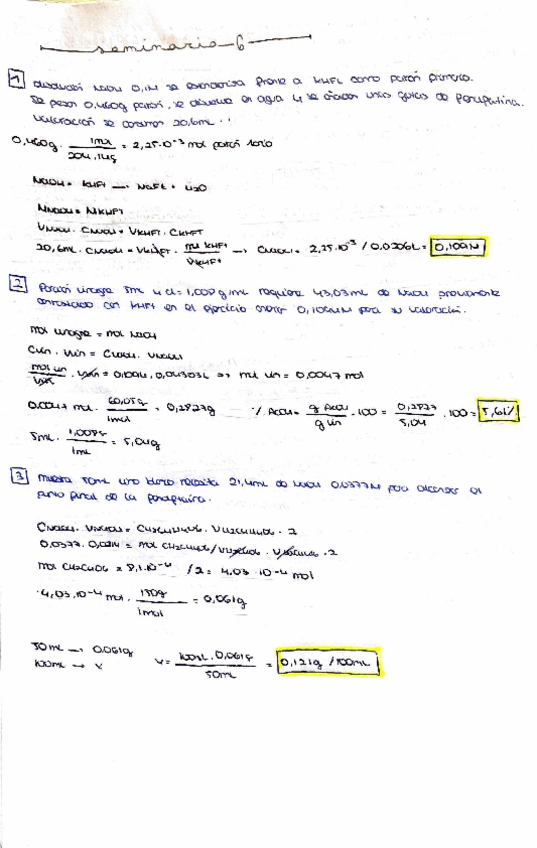 seminario 6
1 disolución NaOH 0,1M se estandariza frente a KHFt como patrón primario.
Se pesan 0,460g patrón, se disuelve en agua y se añaden unas gotas de fenolftaleína.
valoración se consumen 20,6mL.
0,460g · 1mol / 204,14g = 2,25·10⁻³ mol patrón 1ario
NaOH + KHFt → NaFt + H2O
NNaOH = NKHFT
VNaOH · CNaOH = VKHFT · CKHFT
20,6mL · CNaOH = VKHFT · mol KHFt / VKHFt → CNaOH = 2,25·10⁻³ / 0,0206L = 0,109M
2 Porción vinagre 5mL y d=1,008g/mL requiere 43,03mL de NaOH previamente
contrastado con KHFt en el ejercicio anterior 0,109M para su valoración.
mol vinagre = mol NaOH
Cvin · Vvin = CNaOH · VNaOH
mol vin / Vvin · Vvin = 0,109M · 0,04303L → mol vin = 0,0047 mol
0,0047 mol · 60,05g / 1mol = 0,2827g % AcOH = g AcOH / g vin · 100 = 0,2827 / 5,04 · 100 = 5,61%
5mL · 1,008g / 1mL = 5,04g
3 muestra 50mL vino blanco necesita 21,4mL de NaOH 0,0377M para alcanzar el
punto final de la fenolftaleína.
CNaOH · VNaOH = CH2C4H4O6 · VH2C4H4O6 · 2
0,0377 · 0,0214 = mol CH2C4H4O6 / VH2C4H4O6 · VH2C4H4O6 · 2
8,1·10⁻⁴ / 2 = 4,03·10⁻⁴ mol
4,03·10⁻⁴ mol · 150g / 1mol = 0,061g
50mL → 0,061g
100mL → x x = 100mL · 0,061g / 50mL = 0,121g / 100mL